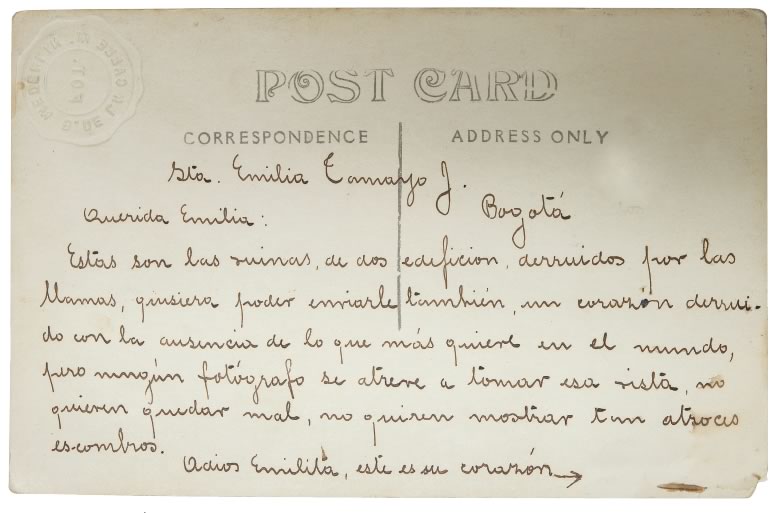 POST CARD
CORRESPONDENCE
ADDRESS ONLY
Sta. Emilia Tamayo J.
Bogotá
Querida Emilia:
Estas son las ruinas, de dos edificion, derruidos por las
llamas, quisiera poder enviarle también, un corazón derrui-
do con la ausencia de lo que más quiere en el mundo,
pero ningún fotógrafo se atreve a tomar esa vista, no
quieren quedar mal, no quiren mostrar tan atroces
escombros.
Adios Emilita, este es su corazón